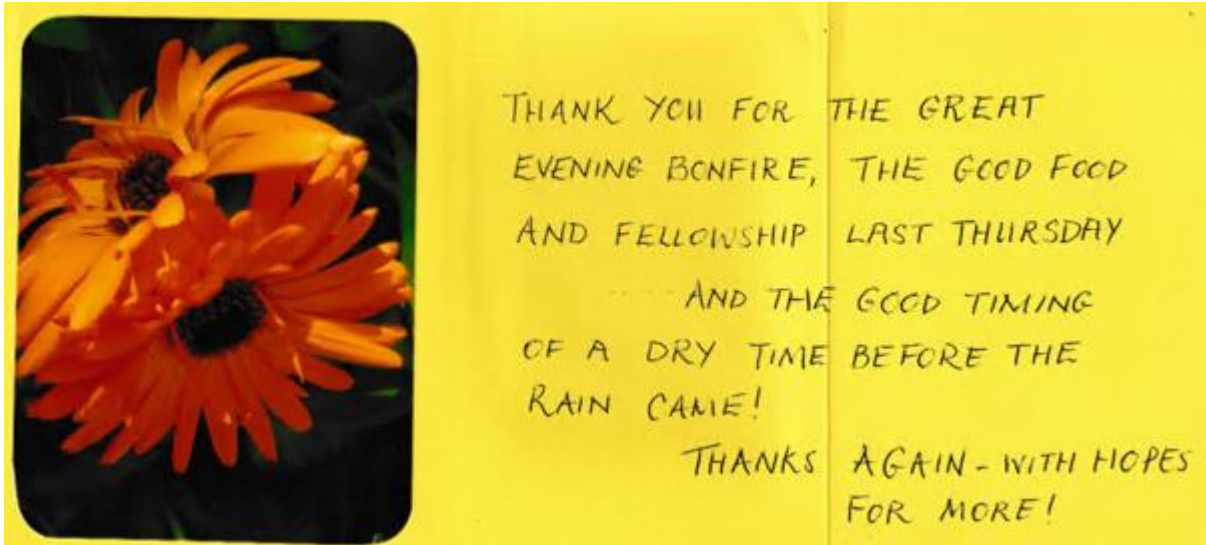 THANK YOU FOR THE GREAT
EVENING BONFIRE, THE GOOD FOOD
AND FELLOWSHIP LAST THURSDAY
..... AND THE GOOD TIMING
OF A DRY TIME BEFORE THE
RAIN CAME!
THANKS AGAIN - WITH HOPES
FOR MORE!